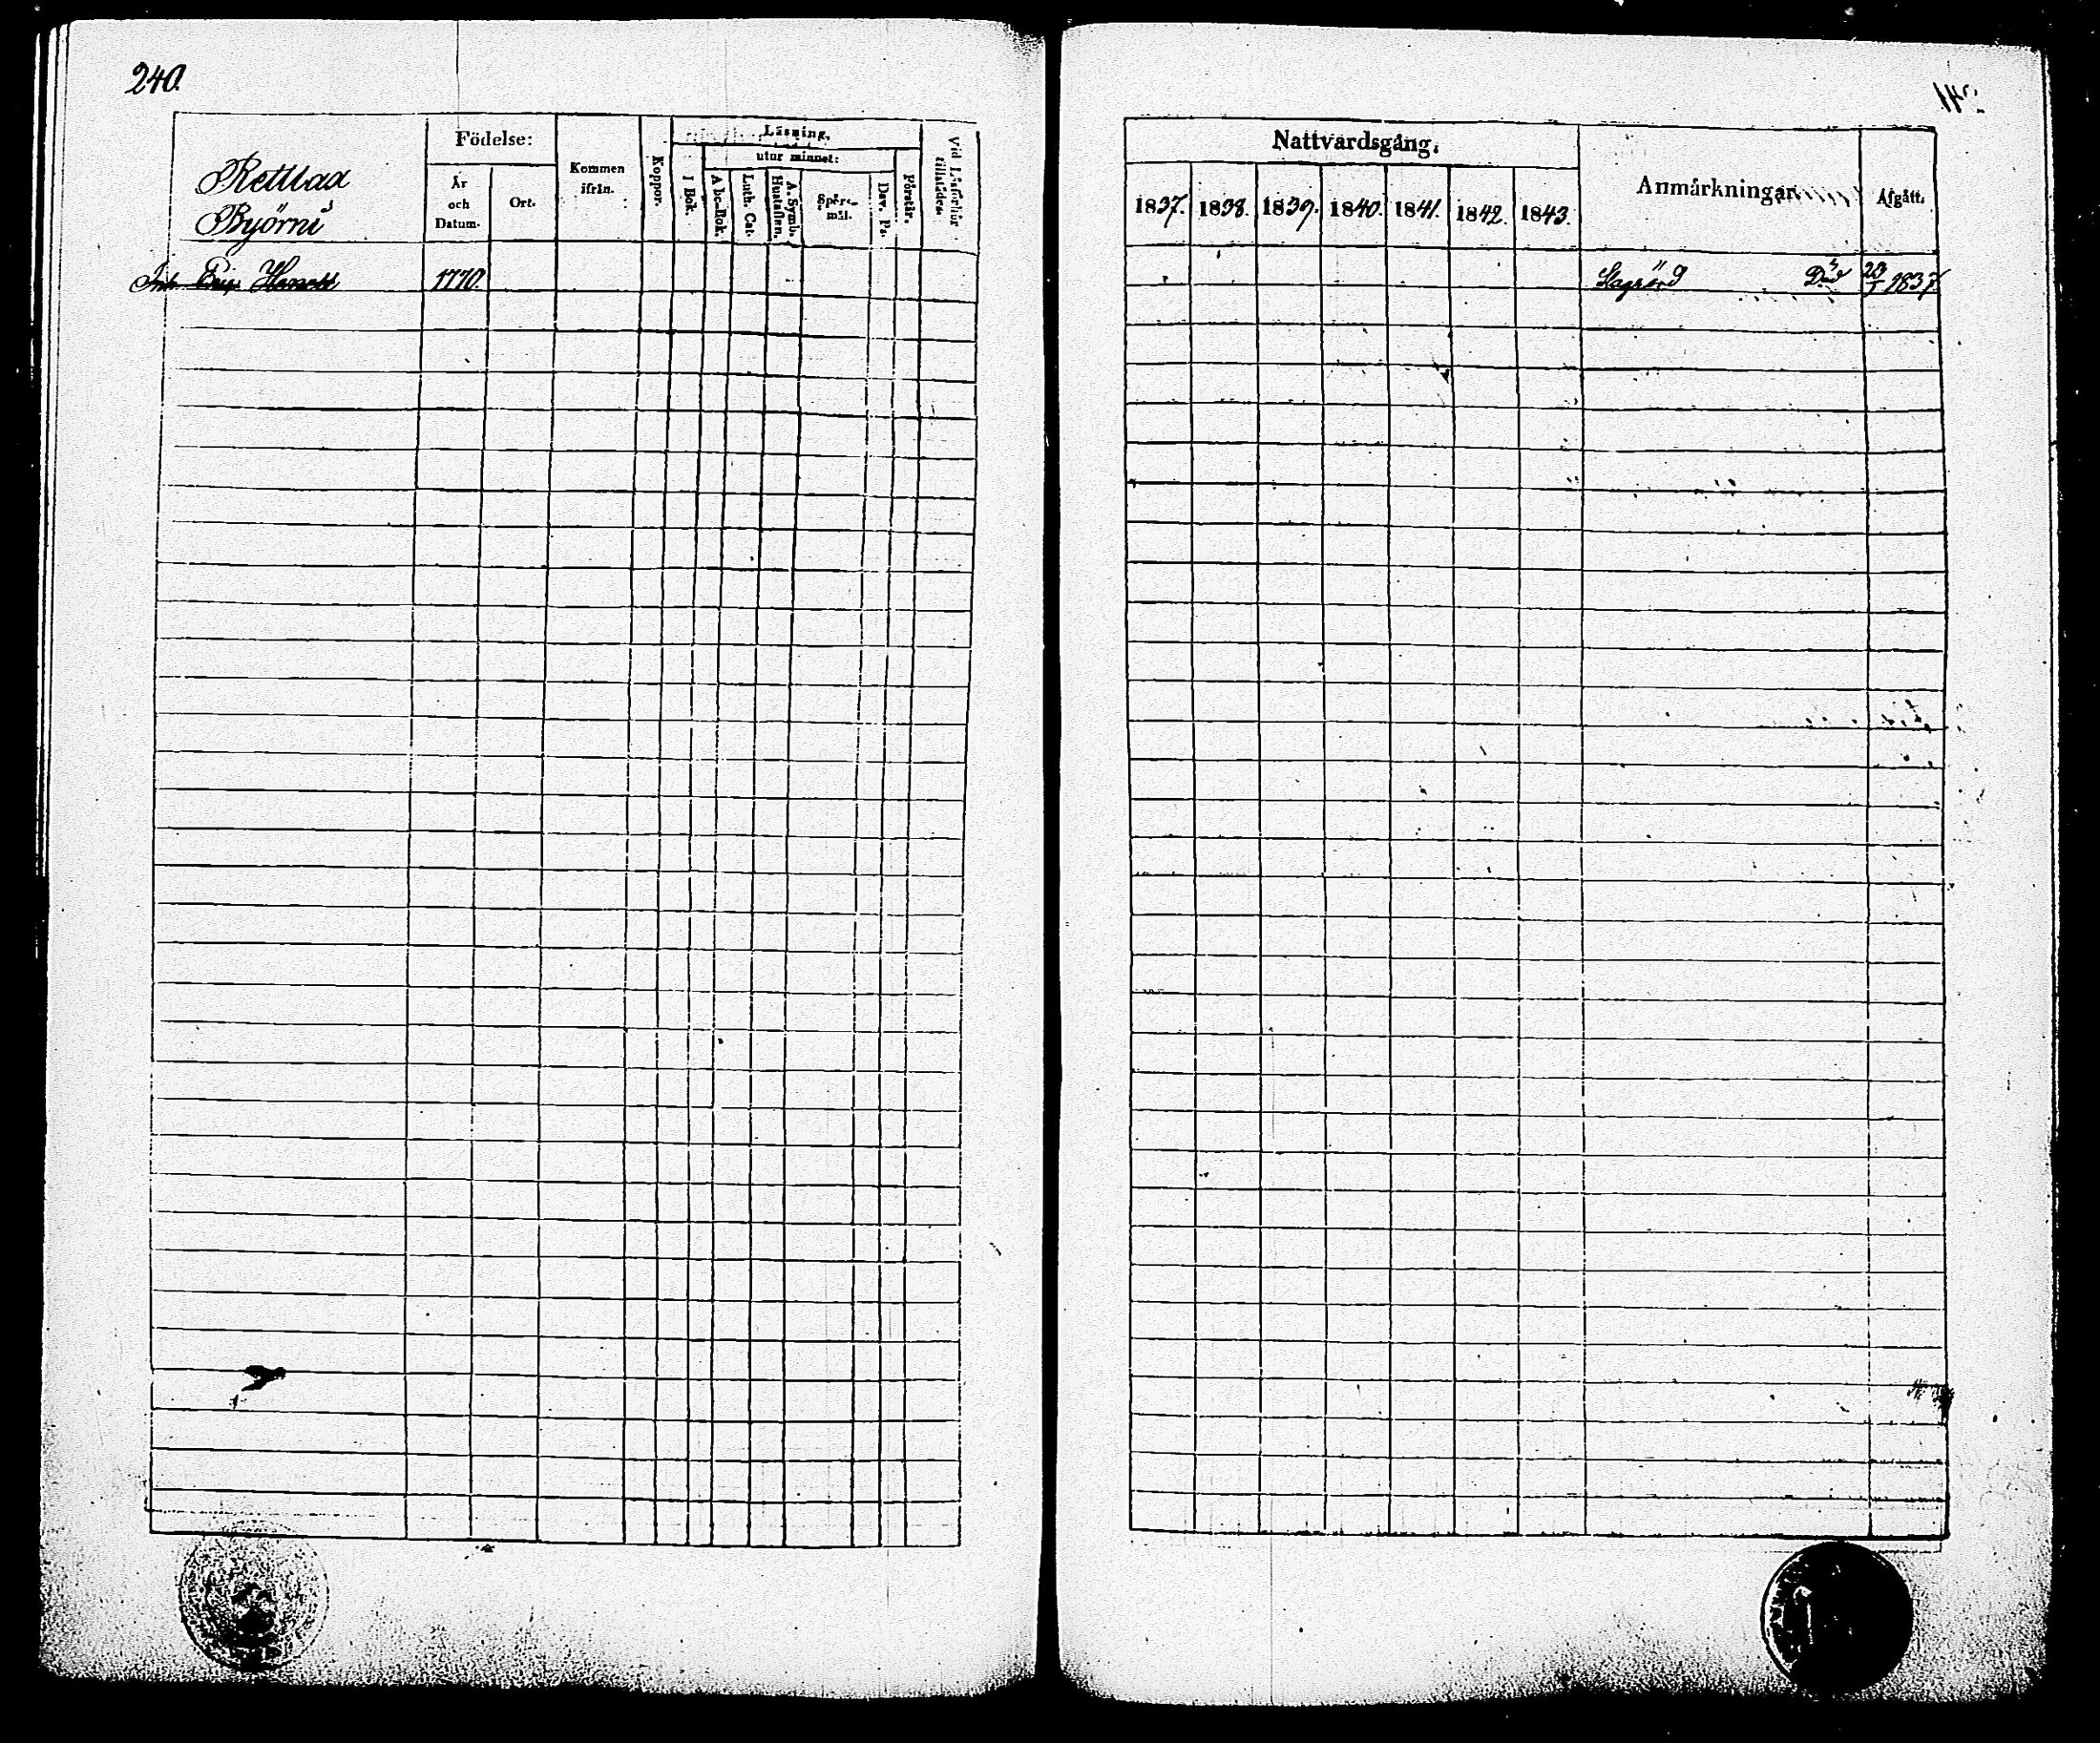 240.
Kettlaa
Byörni
Födelse:
År
och
Datum.
Ort.
Kommen
ifrån.
Koppor.
Läsning.
I Bok.
utur minnet:
A bc-Bok.
Luth. Cat.
A. Symb.
Hustaflen.
Spörs-
mål.
Dav. Ps.
Förstår.
Vid Läsförhör
tillstädes.
Inh. Eric 1770.
Nattvardsgång.
1837. 1838. 1839. 1840. 1841. 1842. 1843.
Anmärkningar.
Afgått.
Slagrörd Död 1837.